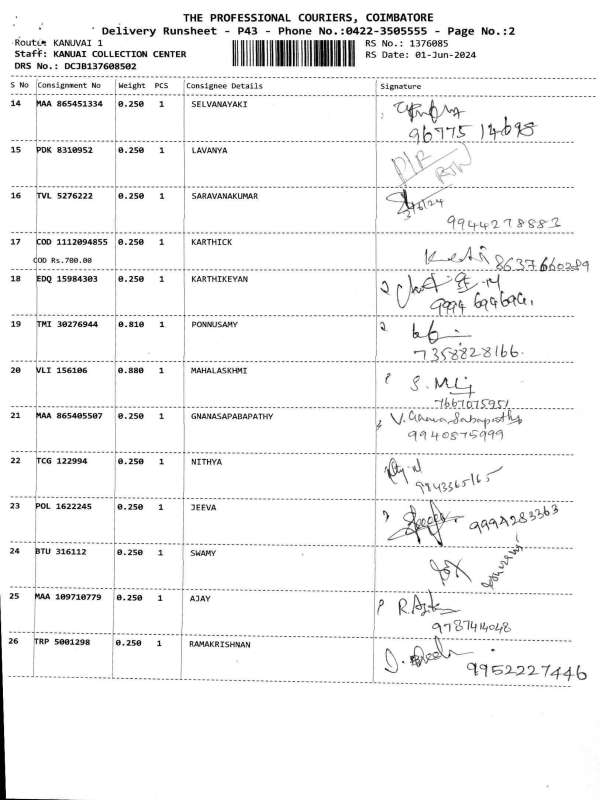 THE PROFESSIONAL COURIERS, COIMBATORE
Delivery Runsheet - P43 - Phone No.:0422-3505555 - Page No.:2
Route: KANUVAI 1
RS No.: 1376085
Staff: KANUAI COLLECTION CENTER
RS Date: 01-Jun-2024
DRS No.: DCJB137608502
S No Consignment No Weight PCS Consignee Details Signature
14 MAA 865451334 0.250 1 SELVANAYAKI
96775 14698
15 PDK 8310952 0.250 1 LAVANYA
D/R RTN
16 TVL 5276222 0.250 1 SARAVANAKUMAR
9944278883
17 COD 1112094855 0.250 1 KARTHICK
COD Rs.700.00
8637660289
18 EDQ 15984303 0.250 1 KARTHIKEYAN
9994 694694
19 TMI 30276944 0.810 1 PONNUSAMY
7358828166
20 VLI 156106 0.880 1 MAHALASKHMI
7667075951
21 MAA 865405507 0.250 1 GNANASAPABAPATHY
V. Gnana Sabapathy
9940875999
22 TCG 122994 0.250 1 NITHYA
9943365165
23 POL 1622245 0.250 1 JEEVA
9994283363
24 BTU 316112 0.250 1 SWAMY
25 MAA 109710779 0.250 1 AJAY
9787414048
26 TRP 5001298 0.250 1 RAMAKRISHNAN
9952227446